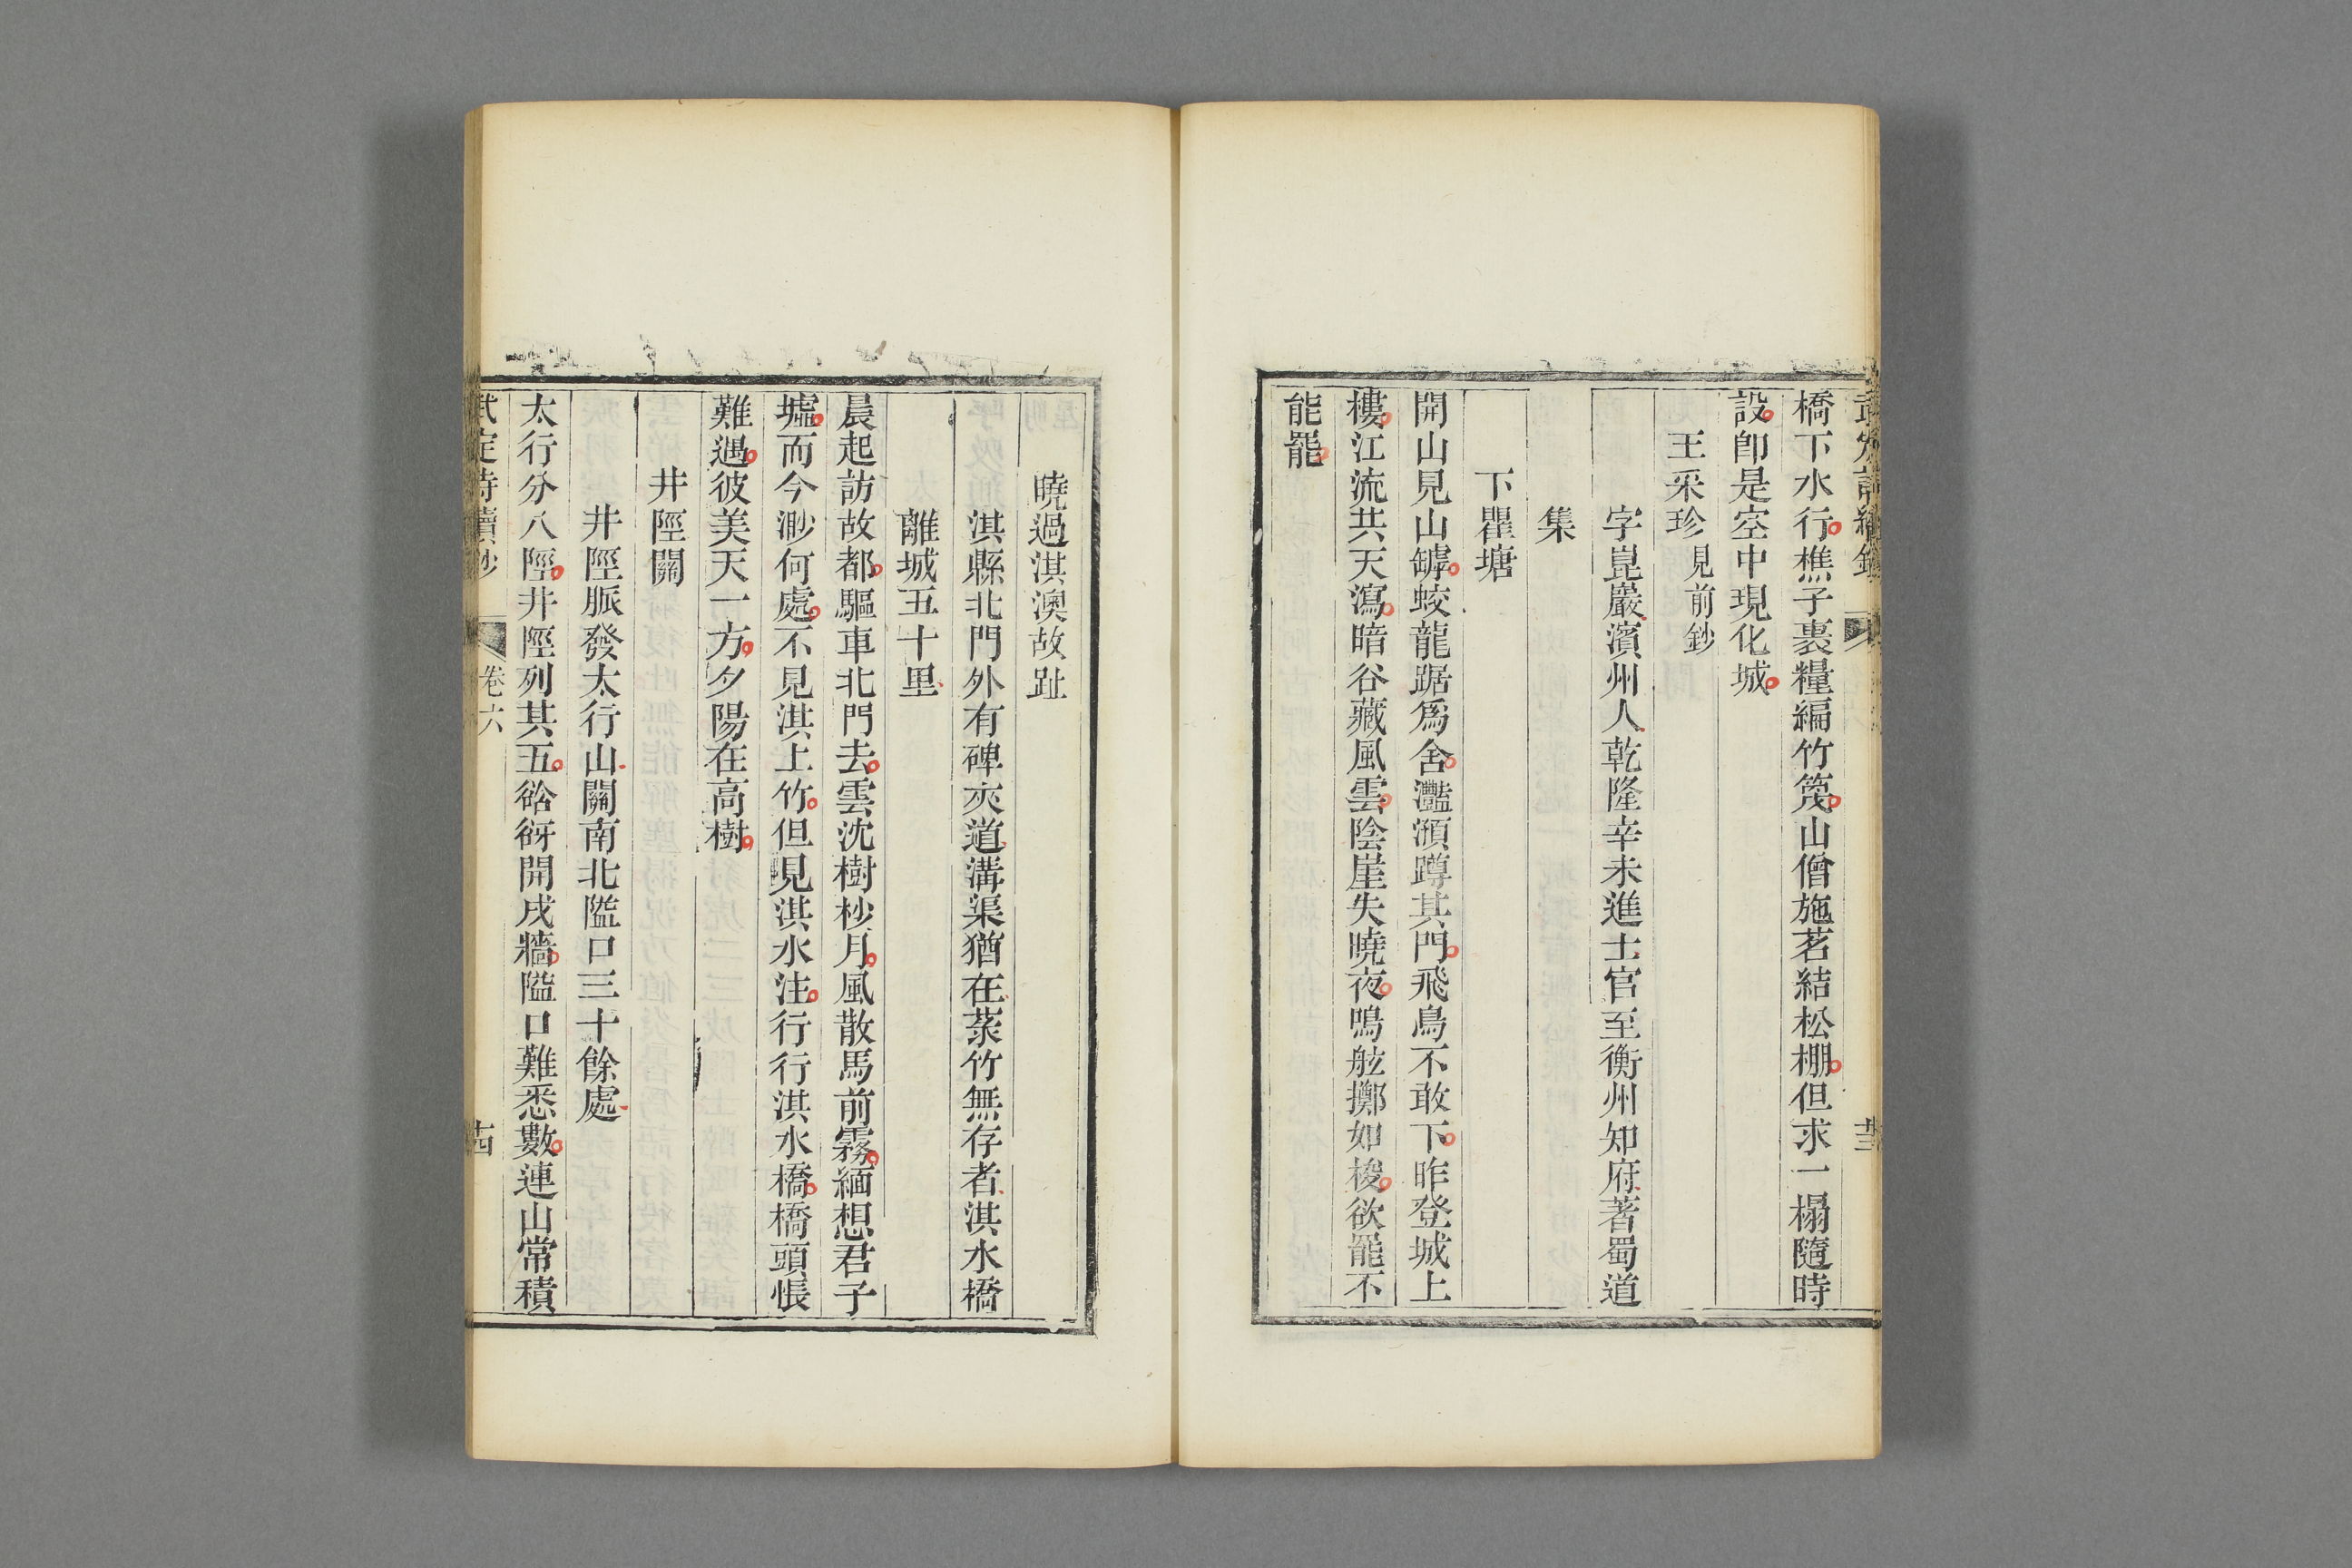 武定詩續鈔
橋下水行樵子裹糧編竹筏山僧施茗結松棚但求一榻隨時
設卽是空中現化城
王采珍見前鈔
字崑巖濱州人乾隆辛未進士官至衡州知府著蜀道
集
下瞿塘
開山見山罅蛟龍踞爲舍灩澦蹲其門飛鳥不敢下昨登城上
樓江流共天瀉暗谷藏風雲陰崖失曉夜鳴舷擲如梭欲罷不
能罷
曉過淇澳故趾
淇縣北門外有碑夾道溝渠猶在菉竹無存者淇水橋
離城五十里
晨起訪故都驅車北門去雲沈樹杪月風散馬前霧緬想君子
墟而今渺何處不見淇上竹但見淇水注行行淇水橋橋頭悵
難遇彼美天一方夕陽在高樹
井陘關
井陘脈發太行山關南北隘口三十餘處
太行分八陘井陘列其五谽谺開戍牆隘口難悉數連山常積
武定詩續鈔 卷六 十四